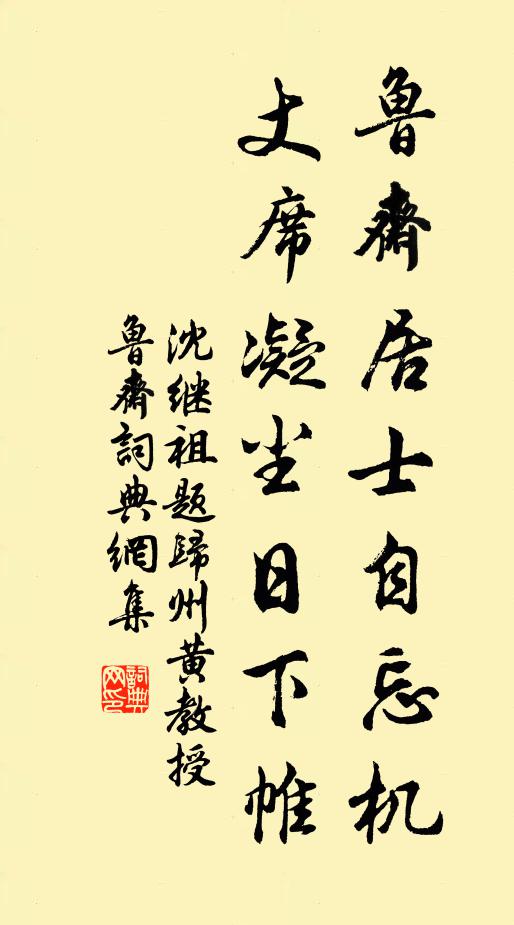 魯齋居士自忘机
丈席凝尘日下帷
沈继祖题歸州黄教授
魯齋詞典網集
詞典网印